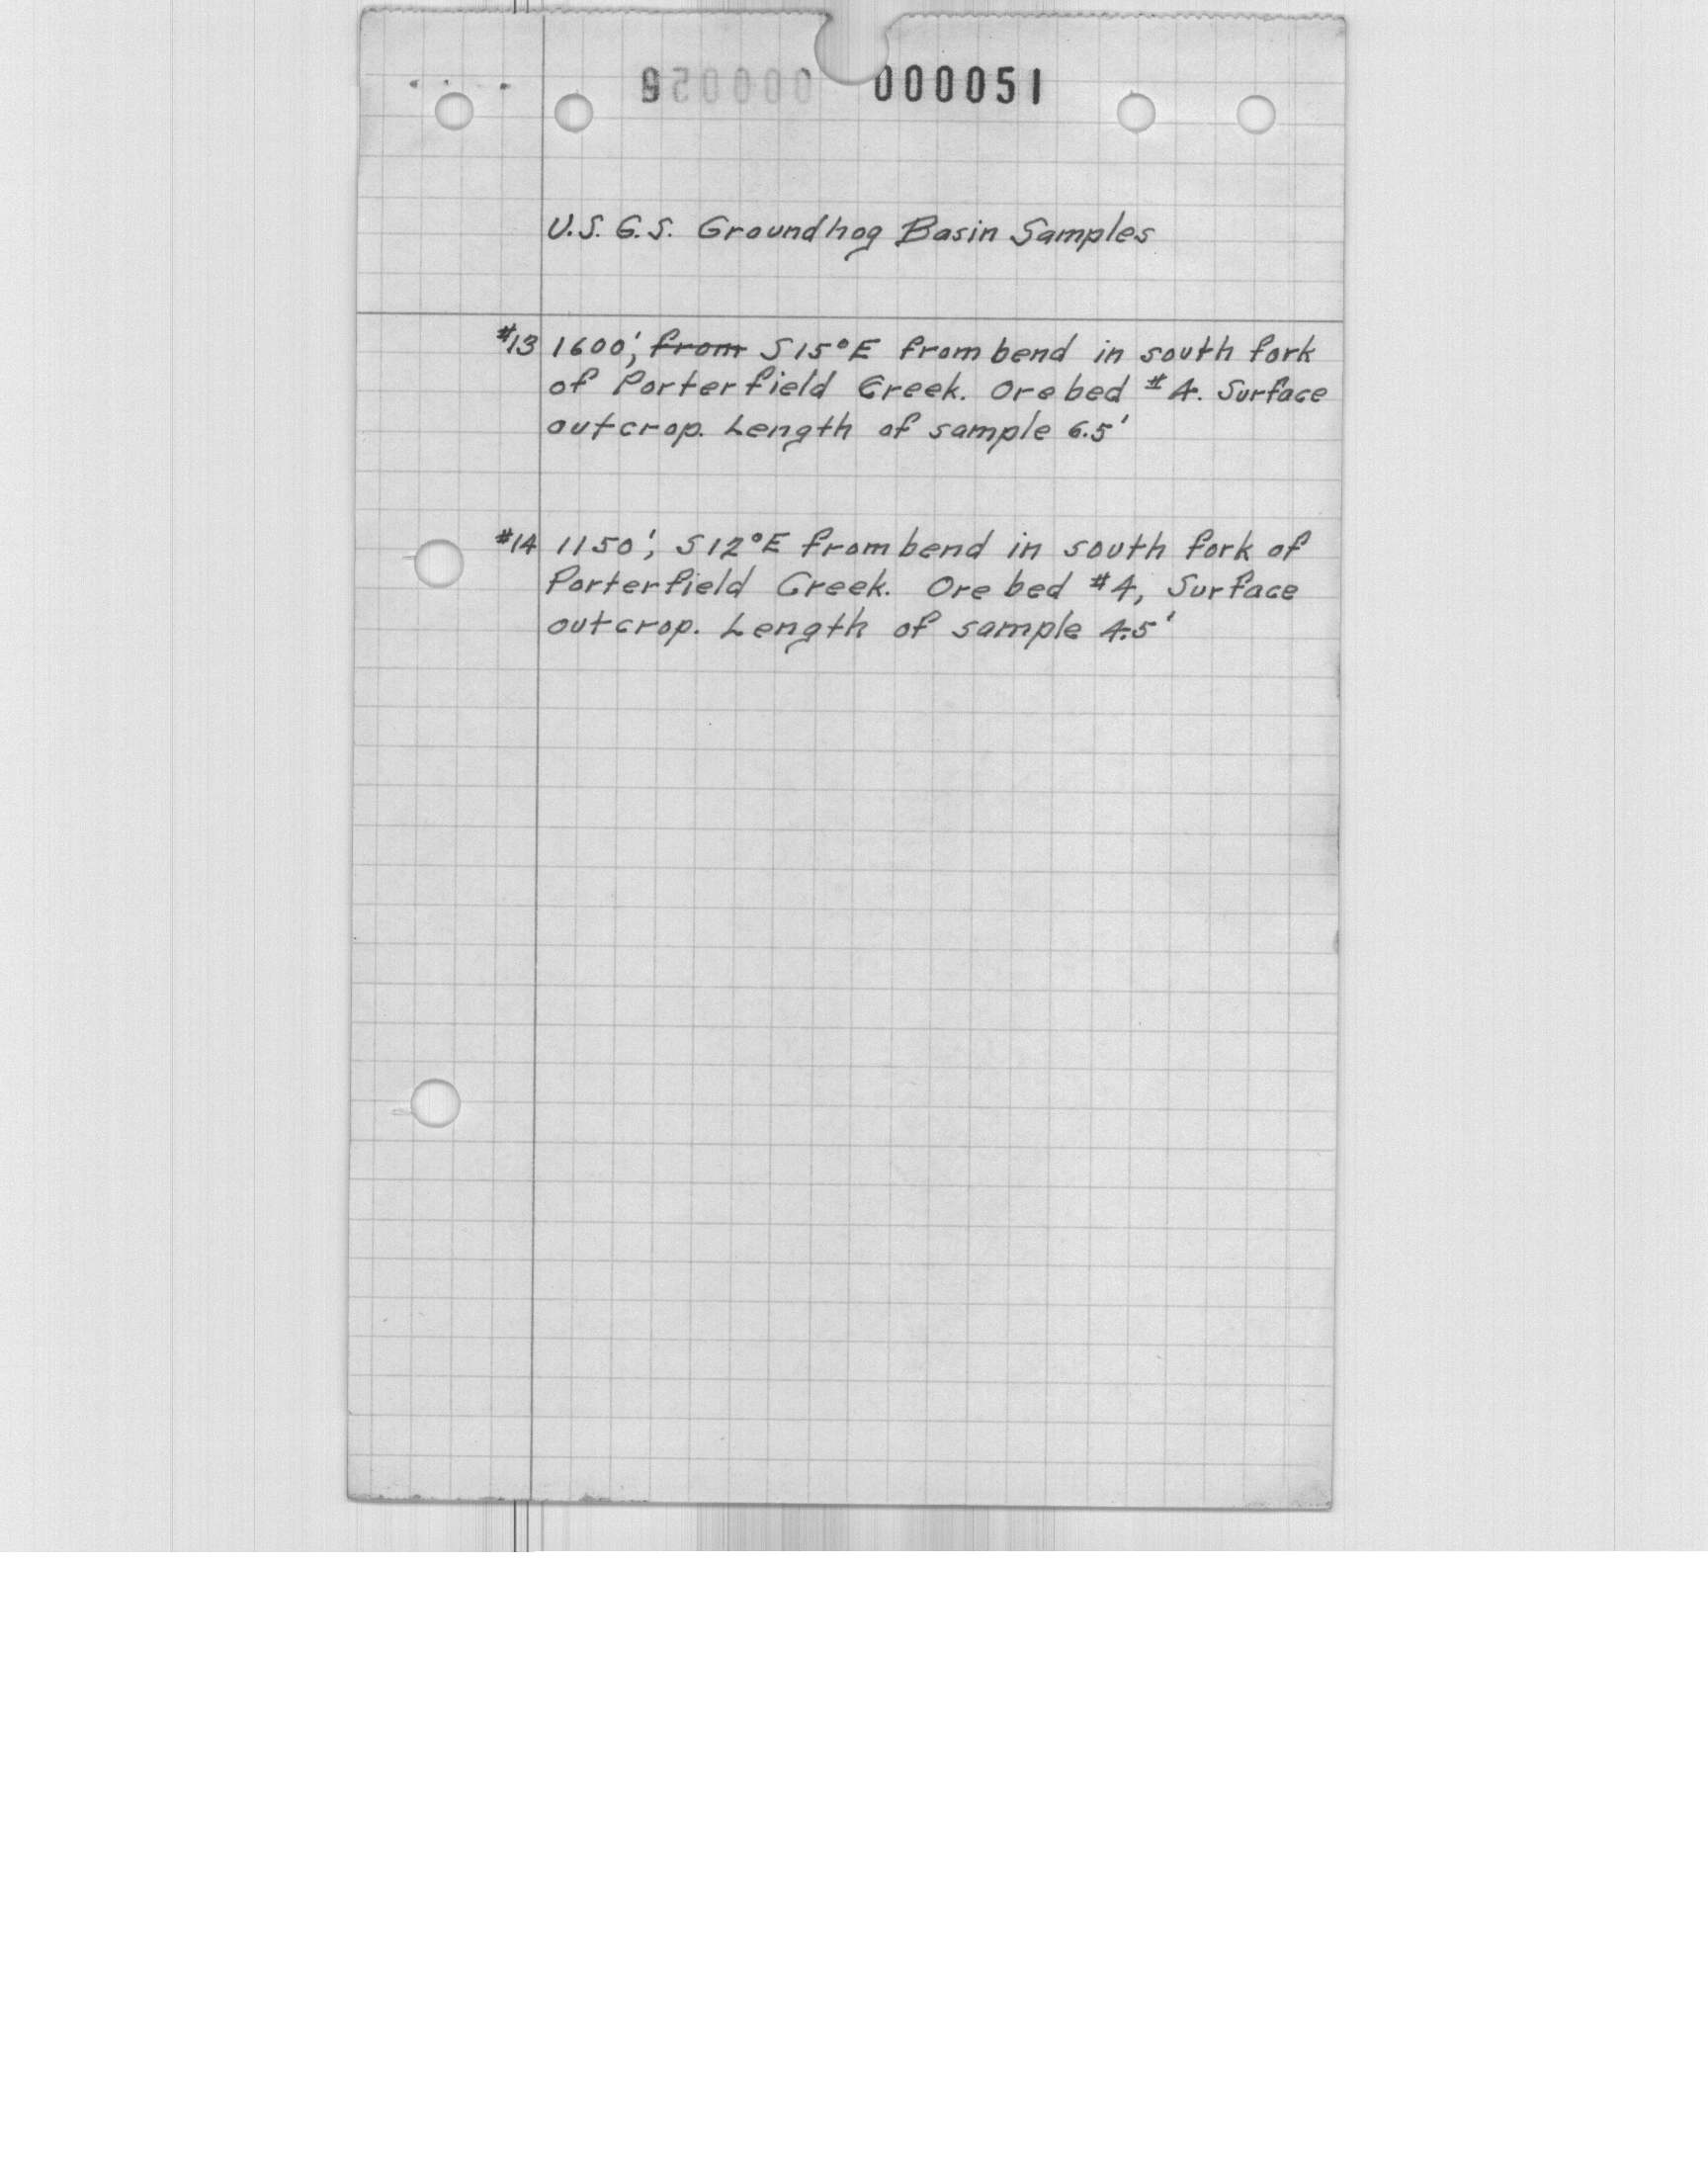 000051
U.S.G.S. Groundhog Basin Samples
#13 1600', from S15°E from bend in south fork
of Porterfield Creek. Ore bed #4. Surface
outcrop. Length of sample 6.5'
#14 1150', S12°E from bend in south fork of
Porterfield Creek. Ore bed #4, Surface
outcrop. Length of sample 4.5'